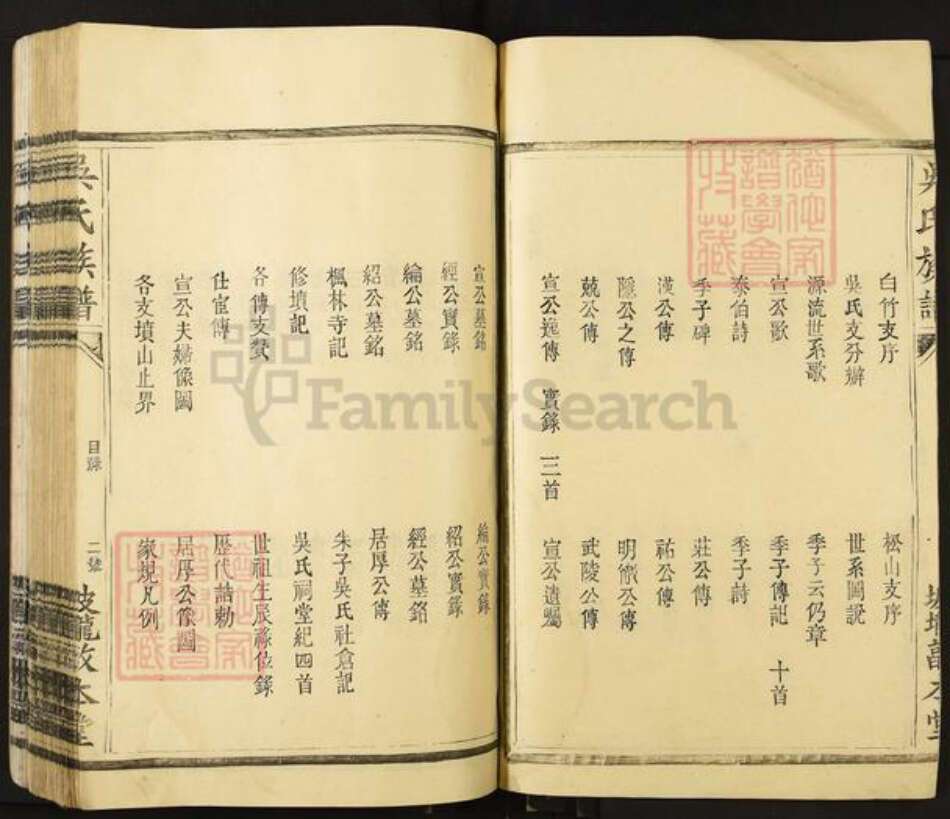 吳氏族譜
白竹支序
松山支序
吳氏支分辦
世系圖說
源流世系歌
季子云仍章
宣公歌
季子傳記 十首
泰伯詩
季子詩
季子碑
莊公傳
漢公傳
祐公傳
隱公之傳
明徹公傳
兢公傳
武陵公傳
宣公逸傳 實錄 三首
宣公遺囑
宣公墓銘
綸公實錄
經公實錄
紹公實錄
綸公墓銘
經公墓銘
紹公墓銘
居厚公傳
楓林寺記
朱子吳氏社倉記
修墳記
吳氏祠堂紀四首
各傳支贊
世祖生辰祿位錄
仕宦傳
歷代誥勅
宣公夫婦像圖
居厚公像圖
各支墳山止界
家規凡例
吳氏族譜
目錄
二號
FamilySearch